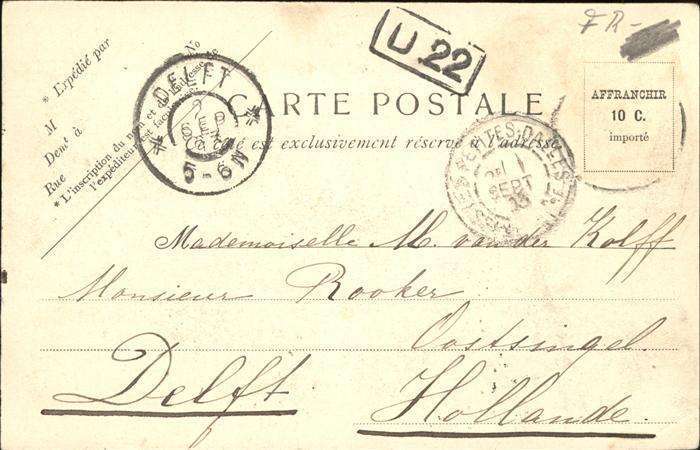 FR-
U 22
N°
* Expédié par
M
Demt à
Rue
* L'inscription du nom et de l'adresse de
l'expéditeur est facultative
DELFT
SEP
5-6 N
CARTE POSTALE
Ce côté est exclusivement réservé à l'adresse
AFFRANCHIR
10 C.
importé
PETITES-DALLES
SEPT
Mademoiselle M. van der Kolff
Monsieur Rooker
Oostsingel.
Delft
Hollande.